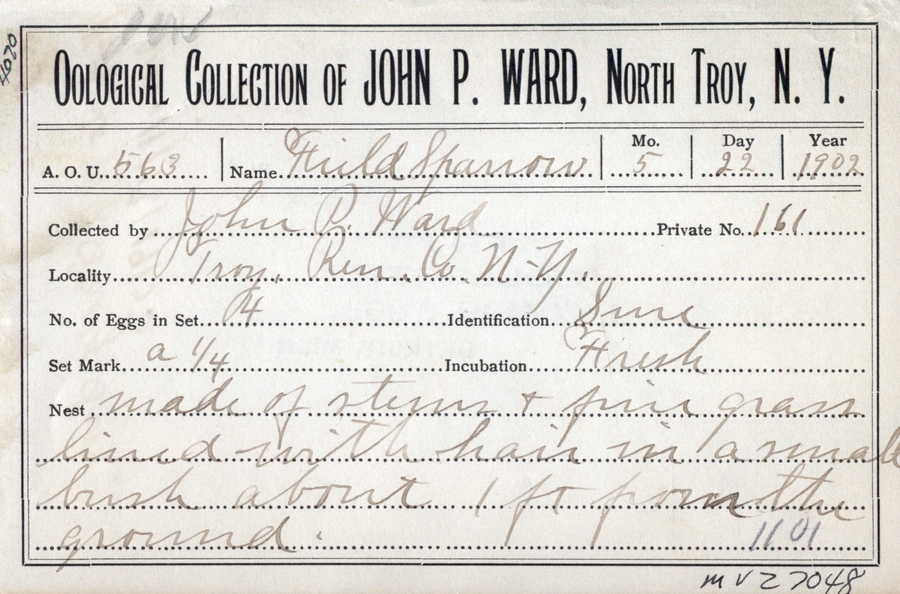 4070
OOLOGICAL COLLECTION OF JOHN P. WARD, NORTH TROY, N. Y.
A. O. U. 563 Name Field Sparrow Mo. 5 Day 22 Year 1902
Collected by John P. Ward Private No. 161
Locality Troy, Ren. Co. N-Y.
No. of Eggs in Set 4 Identification Sure
Set Mark a 1/4 Incubation Fresh
Nest made of stems + fine grass
lined with hair in a small
bush about 1 ft from the
ground.
1101
MVZ 7048